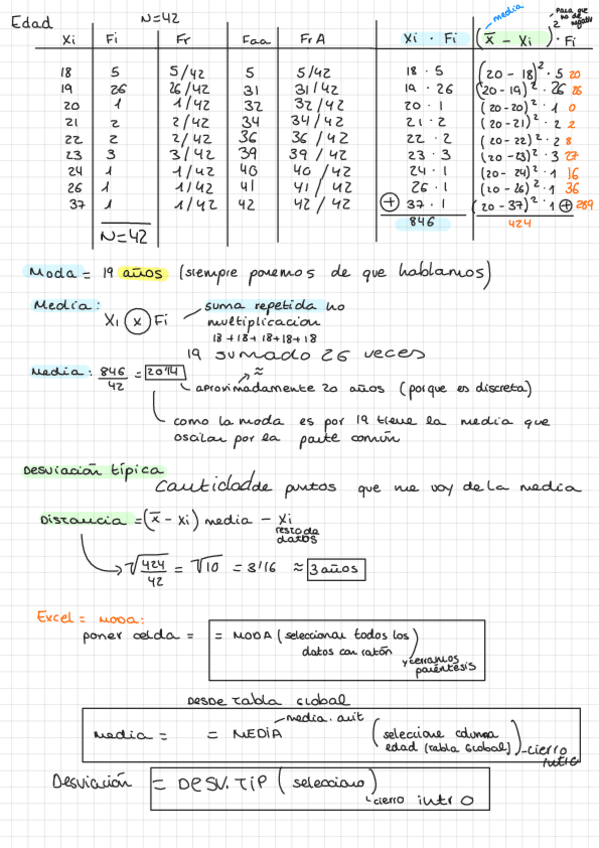 Edad N=42 media para que no de negativo
Xi Fi Fr Faa FrA Xi · Fi (x̄ - Xi)² · Fi
18 5 5/42 5 5/42 18 · 5 (20 - 18)² · 5 20
19 26 26/42 31 31/42 19 · 26 (20 - 19)² · 26 26
20 1 1/42 32 32/42 20 · 1 (20 - 20)² · 1 0
21 2 2/42 34 34/42 21 · 2 (20 - 21)² · 2 2
22 2 2/42 36 36/42 22 · 2 (20 - 22)² · 2 8
23 3 3/42 39 39/42 23 · 3 (20 - 23)² · 3 27
24 1 1/42 40 40/42 24 · 1 (20 - 24)² · 1 16
26 1 1/42 41 41/42 26 · 1 (20 - 26)² · 1 36
37 1 1/42 42 42/42 + 37 · 1 (20 - 37)² · 1 + 289
N=42 846 424
Moda = 19 años (siempre ponemos de que hablamos)
Media: Xi x Fi suma repetida no
multiplicacion
18+18+18+18+18
19 sumado 26 veces
Media: 846/42 = 20'14 ≈
aproximadamente 20 años (porque es discreta)
como la moda es por 19 tiene la media que
oscilar por la parte común
Desviación típica
Cantidad de puntos que me voy de la media
Distancia = (x̄ - Xi) media - Xi
resto de
datos
√424/42 = √10 = 3'16 ≈ 3 años
Excel = moda:
poner celda = = MODA (seleccionar todos los
datos con ratón)
y cerramos
paréntesis
Desde tabla global
media.arit
media = = MEDIA (seleccione columna
edad (tabla global)) - cierro
intro
Desviación = DESV.TIP (selecciono)
cierro intro